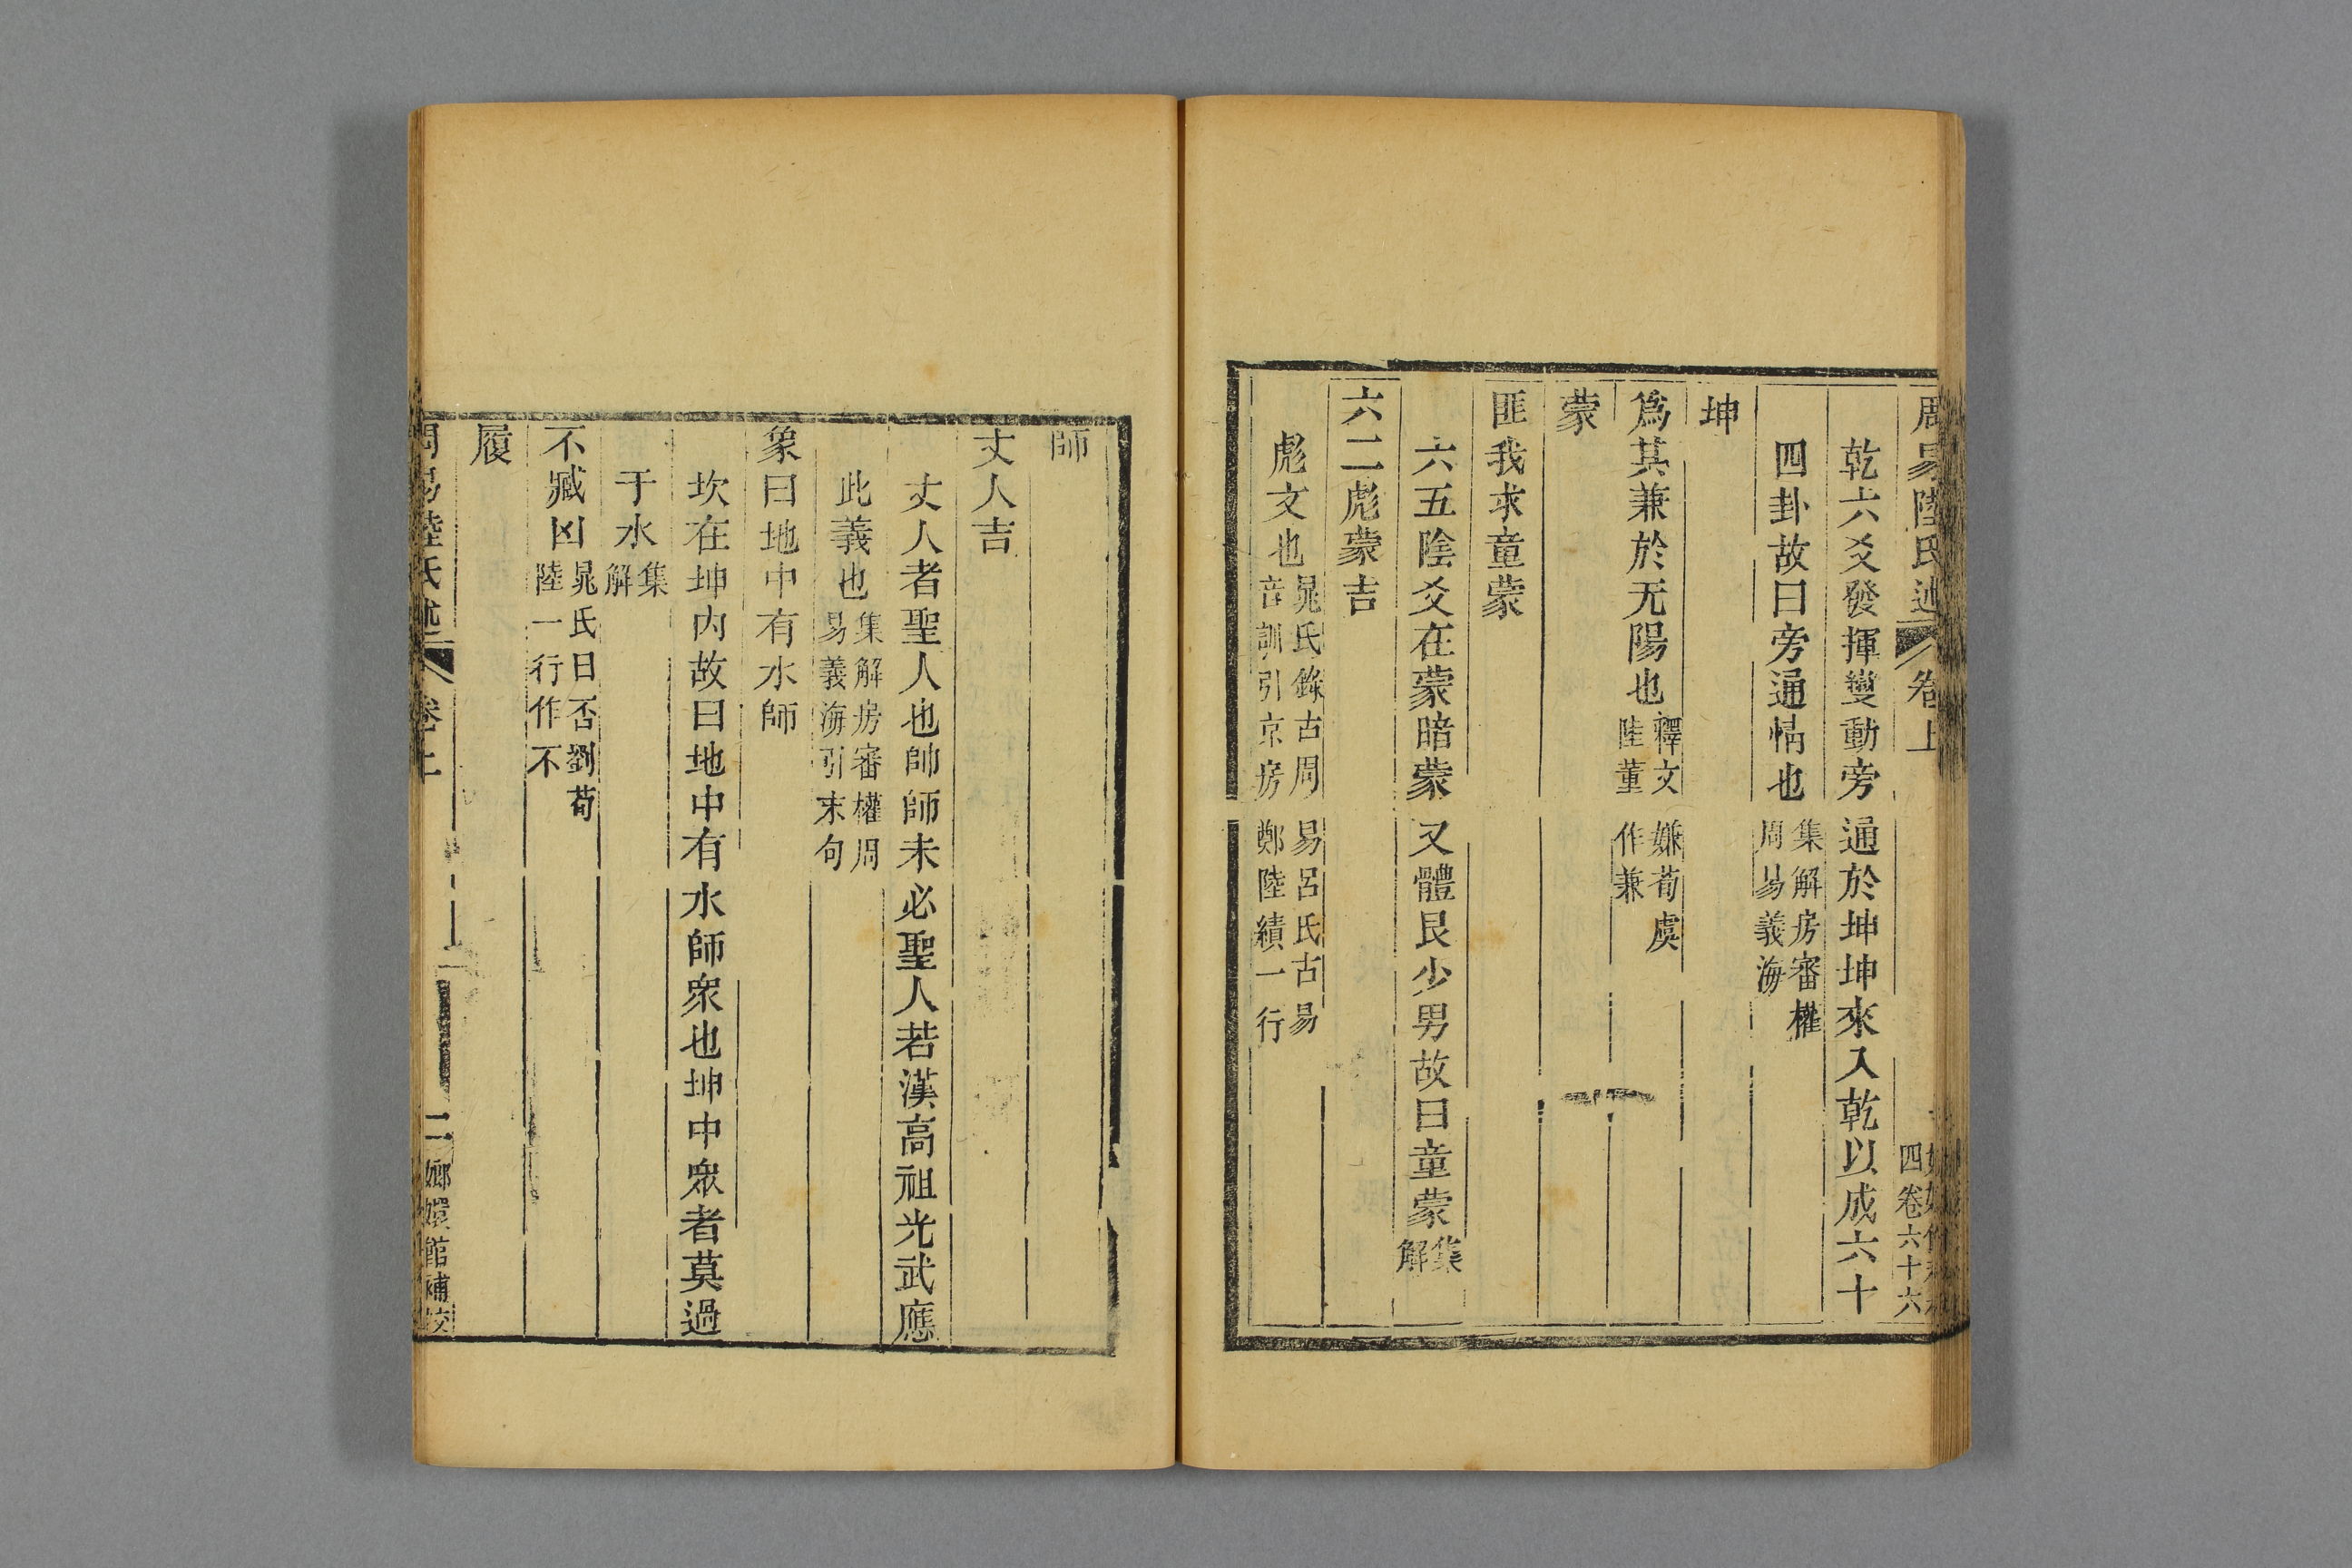 周易陸氏述 卷上
四卷六十六
乾六爻發揮變動旁通於坤坤來入乾以成六十
四卦故曰旁通情也集解房審權周易義海
坤
爲其兼於无陽也釋文嫌荀虞陸董作兼
蒙
匪我求童蒙
六五陰爻在蒙暗蒙又體艮少男故曰童蒙集解
六二彪蒙吉
彪文也晁氏錄古周易呂氏古易音訓引京房鄭陸績一行
師
丈人吉
丈人者聖人也帥師未必聖人若漢高祖光武應
此義也集解房審權周易義海引末句
象曰地中有水師
坎在坤內故曰地中有水師衆也坤中衆者莫過
于水集解
不臧凶晁氏曰否劉荀陸一行作不
履
周易陸氏述 卷上 二 嫏嬛館補校